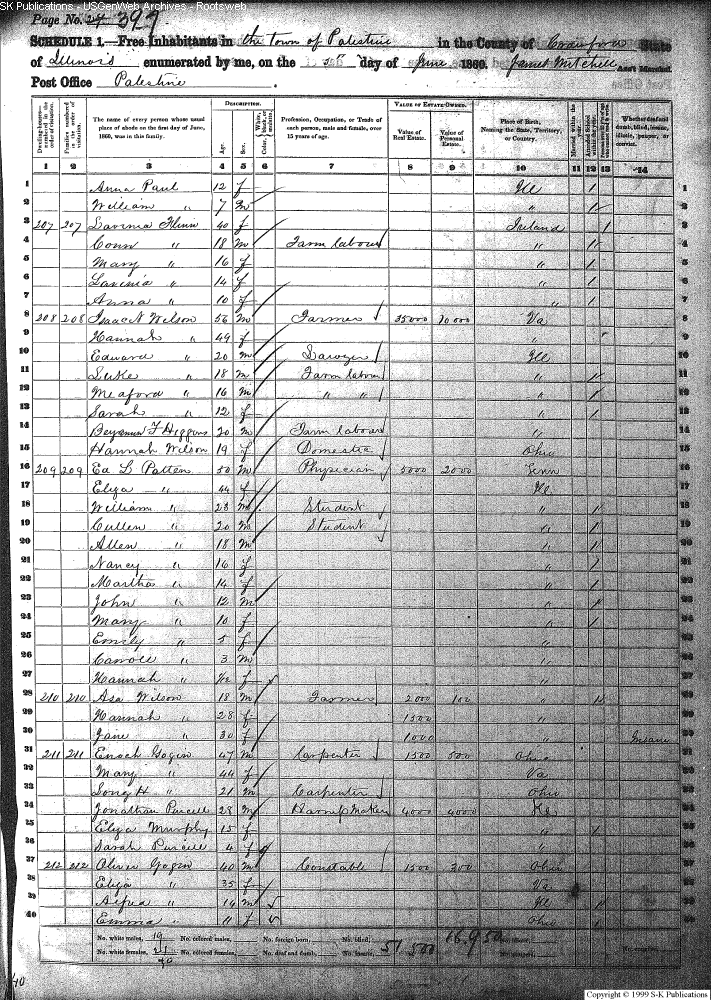 SK Publications - USGenWeb Archives - Rootsweb
Page No. 27 399
SCHEDULE 1.—Free Inhabitants in the Town of Palestine in the County of Crawford State
of Illinois enumerated by me, on the day of June 1860. Ass't Marshal.
Post Office Palestine.
Dwelling-houses—numbered in the order of visitation. Families numbered in the order of visitation. The name of every person whose usual place of abode on the first day of June, 1860, was in this family. DESCRIPTION. Age. Sex. Color, White, black, or mulatto. Profession, Occupation, or Trade of each person, male and female, over 15 years of age. VALUE OF ESTATE OWNED. Value of Real Estate. Value of Personal Estate. Place of Birth, Naming the State, Territory, or Country. Married within the year. Attended School within the year. Whether deaf and dumb, blind, insane, idiotic, pauper, or convict.
1 2 3 4 5 6 7 8 9 10 11 12 13 14
1 Anna Paul 12 f Ill 1 1
2 William " 7 m " 1 2
3 207 207 Lavinia Flinn 40 f Ireland 1 3
4 Conn " 18 m Farm labour " 1 4
5 Mary " 16 f " 1 5
6 Lavinia " 14 f " 1 6
7 Anna " 10 f " 1 7
8 208 208 Isaac N Wilson 56 m Farmer 35000 10000 Va 8
9 Hannah " 49 f " 9
10 Edward " 20 m Lawyer Ill 10
11 Luke " 18 m Farm labour " 1 11
12 Meaford " 16 m " " " 1 12
13 Sarah " 12 f " 1 13
14 Benjamin F Higgins 20 m Farm labour 14
15 Hannah Wilson 19 f Domestic Ohio 15
16 209 209 Ed L Patten 50 m Physician 5000 2000 Tenn 16
17 Eliza " 44 f 17
18 William " 23 m Student " 1 18
19 Cullen " 20 m Student " 1 19
20 Allen " 18 m " 1 20
21 Nancy " 16 f " 1 21
22 Martha " 14 f " 1 22
23 John " 12 m " 1 23
24 Mary " 10 f " 1
25 Emily " 5 f "
26 Carroll " 3 m "
27 Hannah " f "
28 210 210 Asa Wilson 18 m Farmer 2000 100 " 1
29 Hannah " 28 f 1500 "
30 Jane " 30 f 1000 Insane
31 211 211 Enoch Gogin 47 m Carpenter 1500 500 Ohio
32 Mary " 44 f Va
33 Long H " 21 m Carpenter Ohio
34 Jonathan Purcell 28 m Harness Maker 4000 4000
35 Eliza Murphy 15 f " 1
36 Sarah Purcell 4 f "
37 212 212 Oliver Gogin 40 m Constable 1500 300 Ohio
38 Eliza " 35 f Va
39 " 14 m Ill 1
40 Emma " 11 f Ohio 1
No. white males, 19 No. colored males, No. foreign born, No. blind, 51,500 16,950
No. white females, 21 No. colored females, No. deaf and dumb, No. insane,
40
Copyright © 1999 S-K Publications